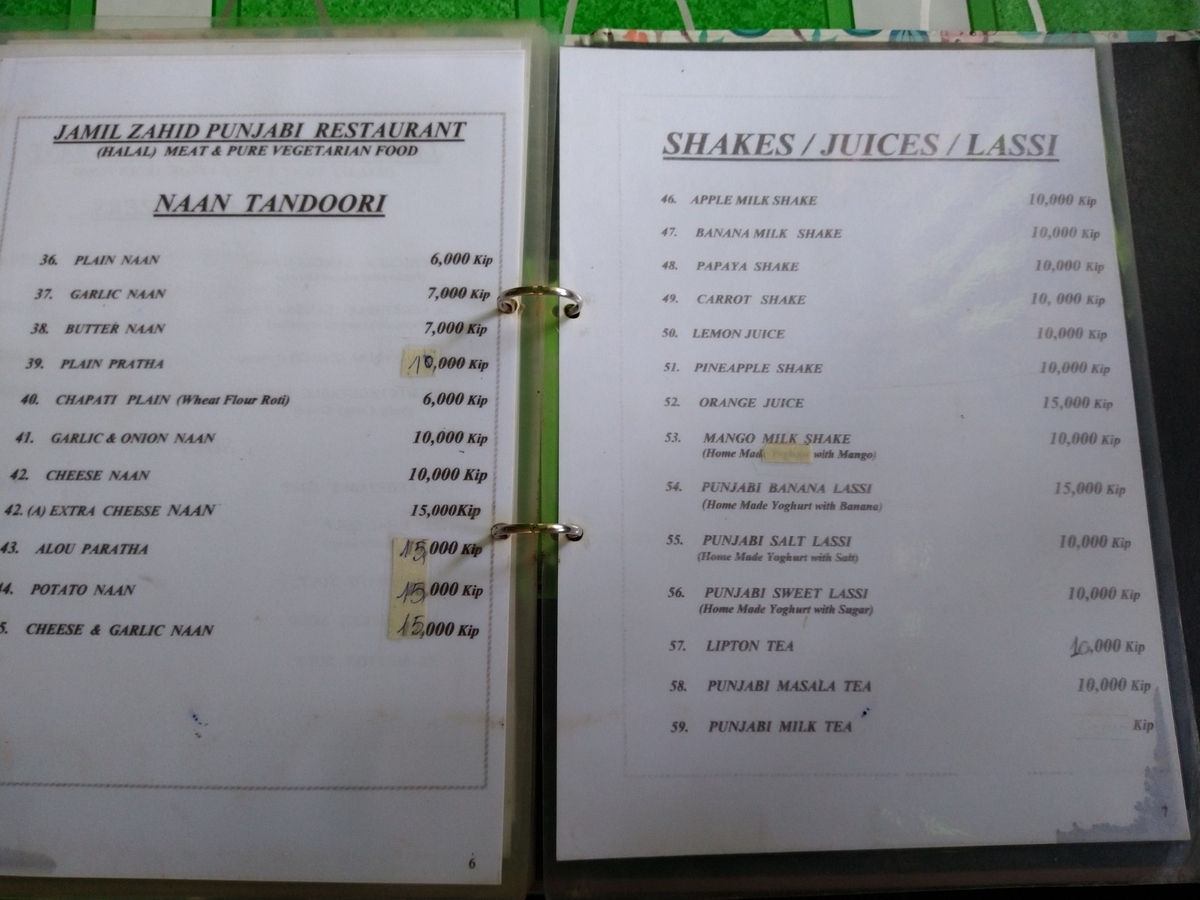 JAMIL ZAHID PUNJABI RESTAURANT
(HALAL) MEAT & PURE VEGETARIAN FOOD
NAAN TANDOORI
36. PLAIN NAAN 6,000 Kip
37. GARLIC NAAN 7,000 Kip
38. BUTTER NAAN 7,000 Kip
39. PLAIN PRATHA 10,000 Kip
40. CHAPATI PLAIN (Wheat Flour Roti) 6,000 Kip
41. GARLIC & ONION NAAN 10,000 Kip
42. CHEESE NAAN 10,000 Kip
42. (A) EXTRA CHEESE NAAN 15,000Kip
43. ALOU PARATHA 15,000 Kip
4. POTATO NAAN 15,000 Kip
5. CHEESE & GARLIC NAAN 15,000 Kip
6
SHAKES / JUICES / LASSI
46. APPLE MILK SHAKE 10,000 Kip
47. BANANA MILK SHAKE 10,000 Kip
48. PAPAYA SHAKE 10,000 Kip
49. CARROT SHAKE 10, 000 Kip
50. LEMON JUICE 10,000 Kip
51. PINEAPPLE SHAKE 10,000 Kip
52. ORANGE JUICE 15,000 Kip
53. MANGO MILK SHAKE 10,000 Kip
(Home Made Yoghurt with Mango)
54. PUNJABI BANANA LASSI 15,000 Kip
(Home Made Yoghurt with Banana)
55. PUNJABI SALT LASSI 10,000 Kip
(Home Made Yoghurt with Salt)
56. PUNJABI SWEET LASSI 10,000 Kip
(Home Made Yoghurt with Sugar)
57. LIPTON TEA 10,000 Kip
58. PUNJABI MASALA TEA 10,000 Kip
59. PUNJABI MILK TEA Kip
7